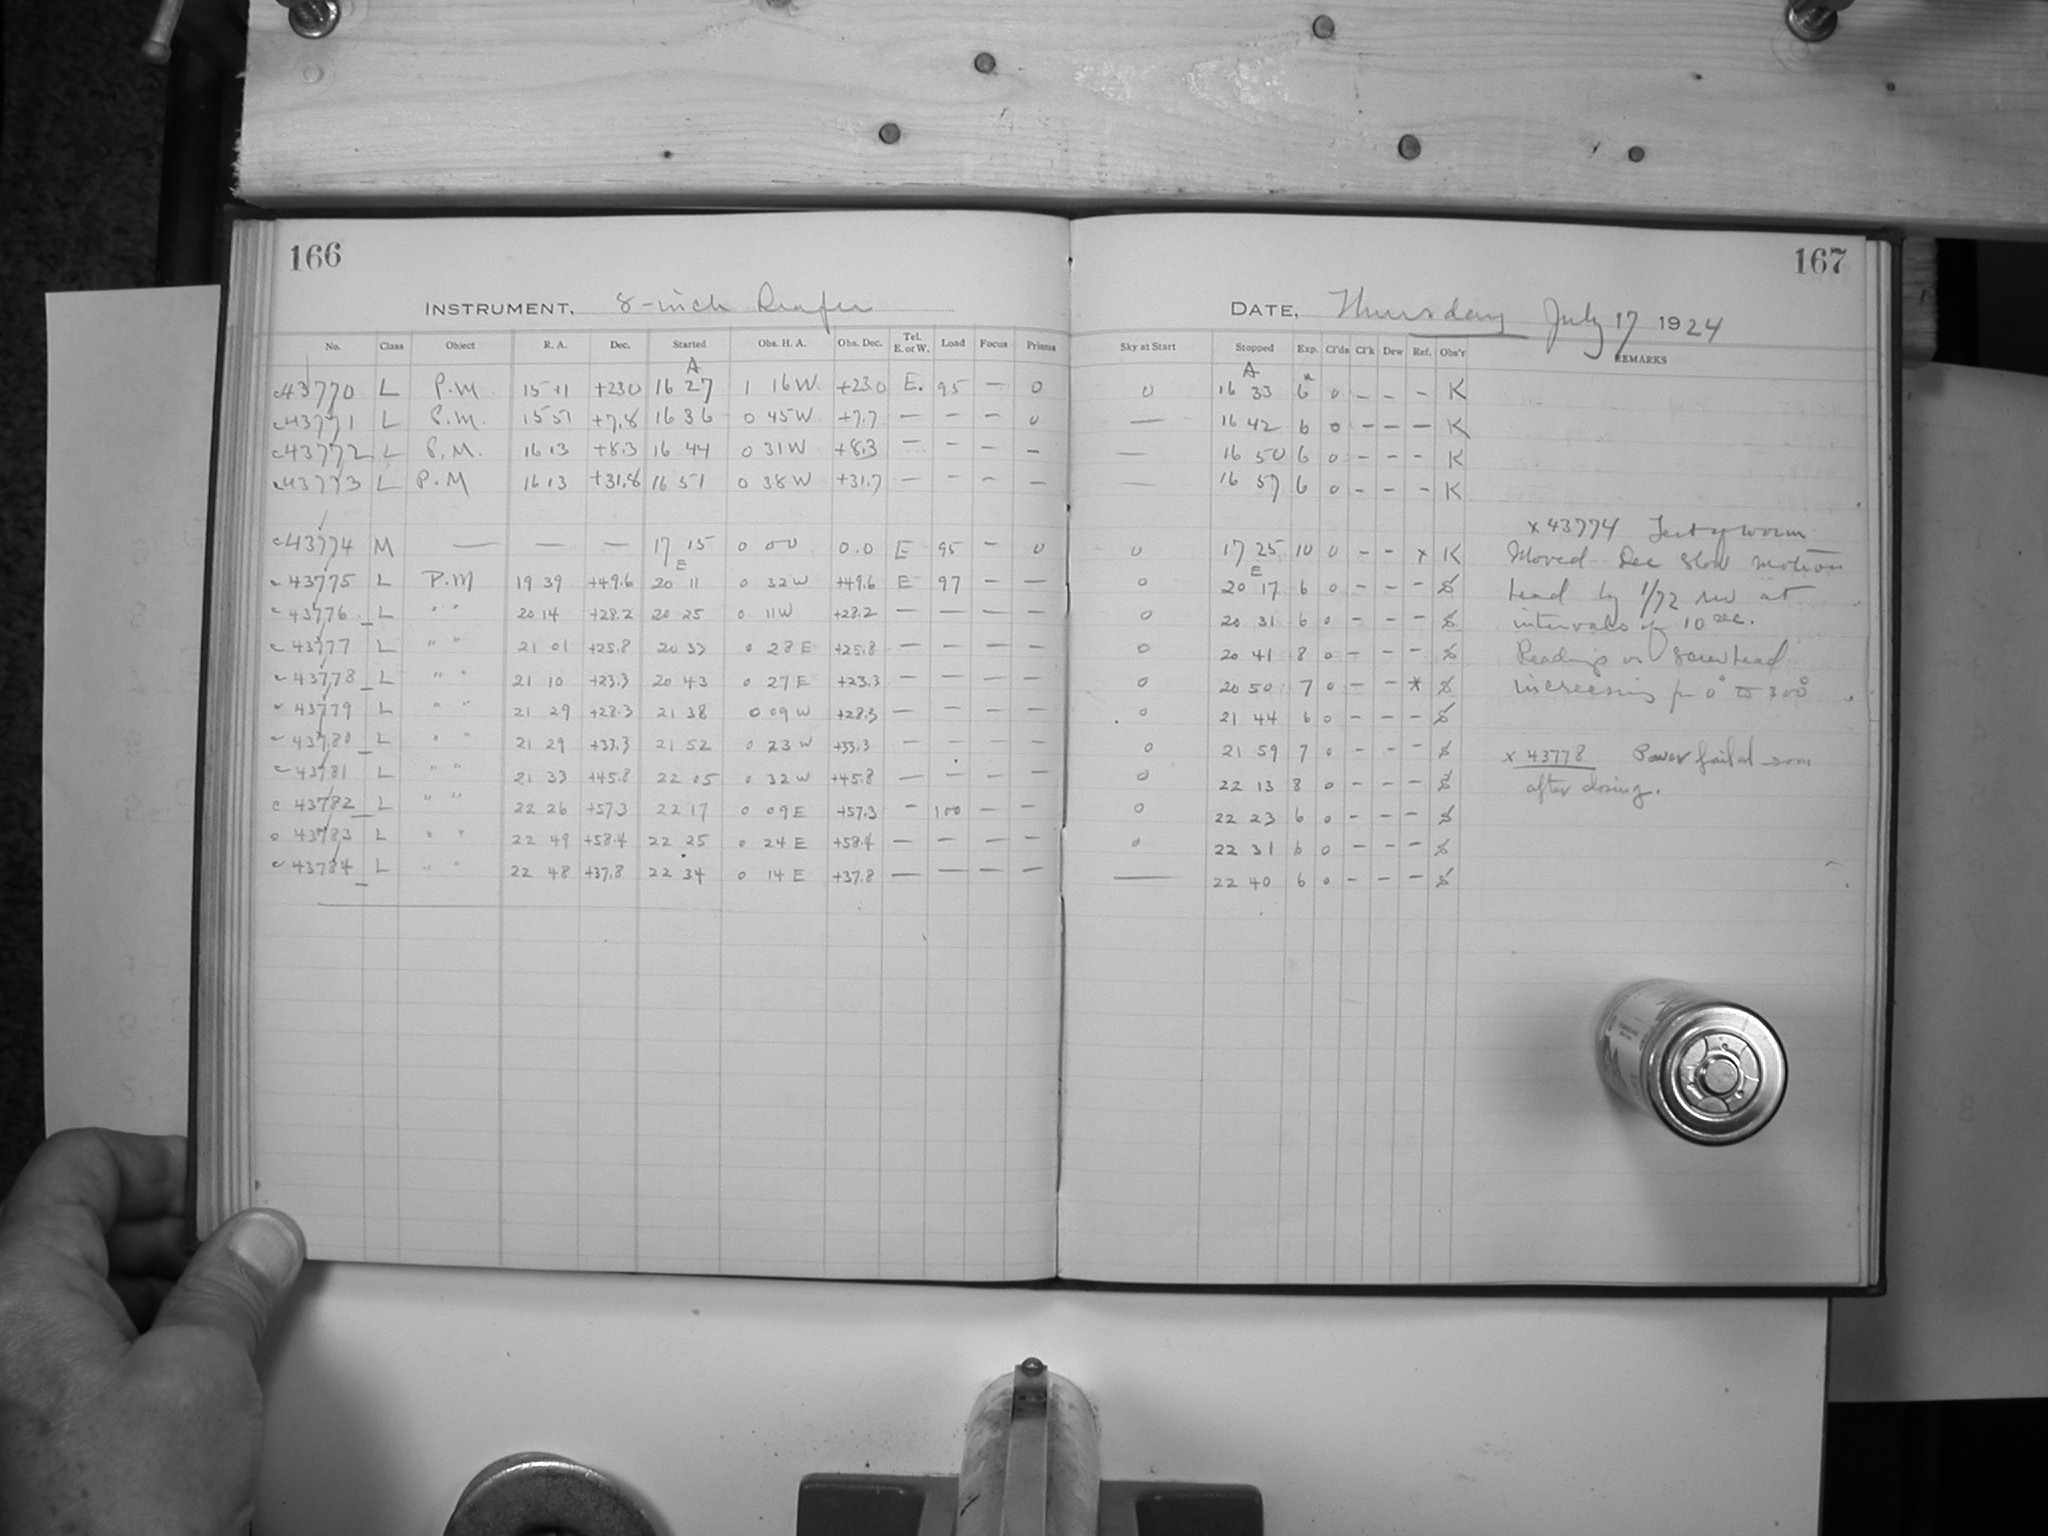 166
INSTRUMENT. 8-inch Draper
No. Class Object R. A. Dec. Started Obs. H. A. Obs. Dec. Tel. E. or W. Load Focus Prisms
A
c43770 L P.M. 15 11 +23.0 16 27 1 16 W +23.0 E. 95 — 0
c43771 L P.M. 15 51 +7.8 16 36 0 45 W +7.7 — — — 0
c43772 L P.M. 16 13 +8.3 16 44 0 31 W +8.3 — — — —
c43773 L P.M 16 13 +31.8 16 51 0 38 W +31.7 — — — —
c43774 M — — — 17 15 0 00 0.0 E 95 — 0
E
c43775 L P.M 19 39 +49.6 20 11 0 32 W +49.6 E 97 — —
c43776 L " " 20 14 +28.2 20 25 0 11 W +28.2 — — — —
c43777 L " " 21 01 +25.8 20 33 0 28 E +25.8 — — — —
c43778 L " " 21 10 +23.3 20 43 0 27 E +23.3 — — — —
c43779 L " " 21 29 +28.3 21 38 0 09 W +28.3 — — — —
c43780 L " " 21 29 +33.3 21 52 0 23 W +33.3 — — — —
c43781 L " " 21 33 +45.8 22 05 0 32 W +45.8 — — — —
c43782 L " " 22 26 +57.3 22 17 0 09 E +57.3 — 100 — —
c43783 L " " 22 49 +58.4 22 25 0 24 E +58.4 — — — —
c43784 L " " 22 48 +37.8 22 34 0 14 E +37.8 — — — —
167
DATE, Thursday July 17 1924
Sky at Start Stopped Exp. Cl'ds Cl'k Dew Ref. Obs'r REMARKS
A
0 16 33 6 0 - - - K
— 16 42 6 0 - - - K
— 16 50 6 0 - - - K
— 16 57 6 0 - - - K
0 17 25 10 0 - - x K
E
0 20 17 6 0 - - -
0 20 31 6 0 - - -
0 20 41 8 0 - - -
0 20 50 7 0 - - *
0 21 44 6 0 - - -
0 21 59 7 0 - - -
0 22 13 8 0 - - -
0 22 23 6 0 - - -
0 22 31 6 0 - - -
— 22 40 6 0 - - -
x 43774 Test of worm
Moved Dec slow motion
head by 1/72 rev at
intervals of 10 sec.
Readings on screwhead
increasing fr 0° to 300°
x 43778 Power failed soon
after closing.